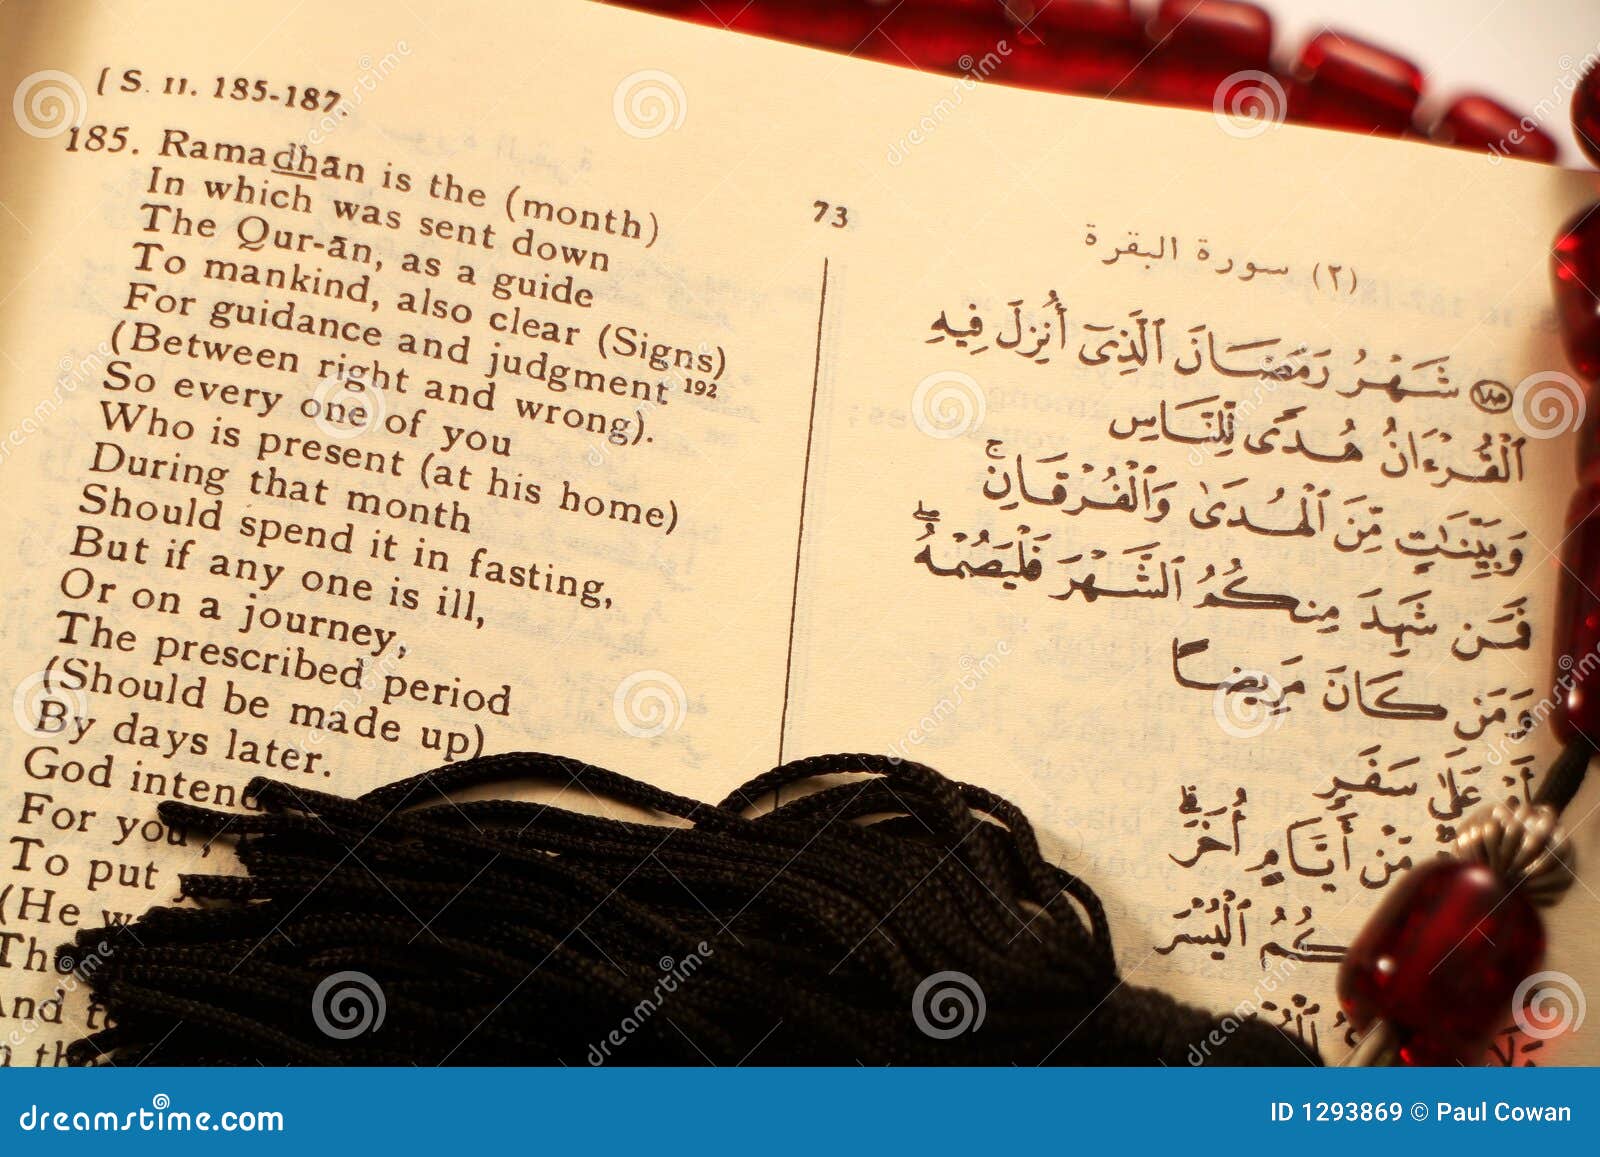 ( S. II. 185-187.
185. Ramadhān is the (month)
In which was sent down
The Qur-ān, as a guide
To mankind, also clear (Signs)
For guidance and judgment 192
(Between right and wrong).
So every one of you
Who is present (at his home)
During that month
Should spend it in fasting,
But if any one is ill,
Or on a journey,
The prescribed period
(Should be made up)
By days later.
God
For you,
To put
(He
73
(٢) سورة البقرة
١٨٥ شَهْرُ رَمَضَانَ ٱلَّذِىٓ أُنزِلَ فِيهِ
ٱلْقُرْءَانُ هُدًى لِّلنَّاسِ
وَبَيِّنَٰتٍ مِّنَ ٱلْهُدَىٰ وَٱلْفُرْقَانِ ۚ
فَمَن شَهِدَ مِنكُمُ ٱلشَّهْرَ فَلْيَصُمْهُ ۖ
وَمَن كَانَ مَرِيضًا
أَوْ عَلَىٰ سَفَرٍ
مِّنْ أَيَّامٍ أُخَرَ ۗ
ٱلْيُسْرَ
dreamstime.com
ID 1293869 © Paul Cowan